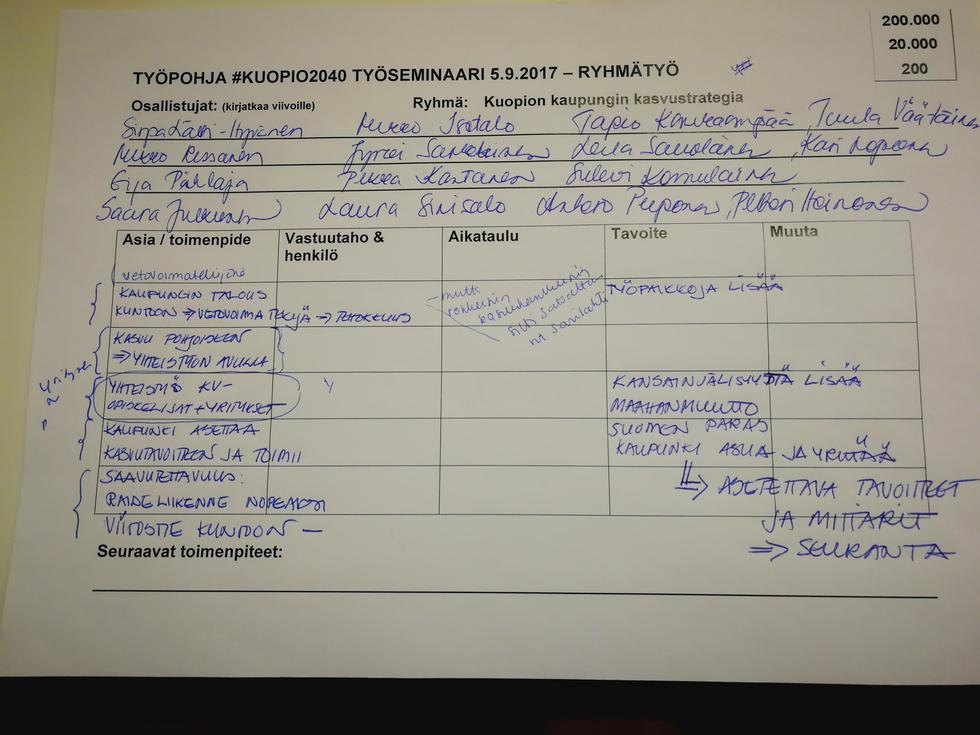 200.000
20.000
200
TYÖPOHJA #KUOPIO2040 TYÖSEMINAARI 5.9.2017 – RYHMÄTYÖ
Osallistujat: (kirjatkaa viivoille) Ryhmä: Kuopion kaupungin kasvustrategia
Mikko Isotalo Tapio Tuula Väätäinen
Mikko Rissanen Leila Savolainen, Kari
Eija Pirkka Kartanen Sulevi Komulainen
Saara Laura Sinisalo Antero Piiponen, Petteri Heinonen
Asia / toimenpide Vastuutaho & henkilö Aikataulu Tavoite Muuta
vetovoimatekijänä
KAUPUNGIN TALOUS
KUNTOON => VETOVOIMATEKIJÄ
– mutta
rohkeisiin
TYÖPAIKKOJA LISÄÄ
KASVU POHJOISEEN
=> YHTEISTYÖN AVULLA
YHTEISTYÖ KV-
OPISKELIJAT + YRITYKSET
KANSAINVÄLISYYTTÄ LISÄÄ
MAAHANMUUTTO
KAUPUNKI ASETTAA
KASVUTAVOITTEEN JA TOIMII
SUOMEN PARAS
KAUPUNKI ASUA JA YRITTÄÄ
SAAVUTETTAVUUS:
RAIDELIIKENNE NOPEAKSI
VIITOSTIE KUNTOON –
=> ASETETTAVA TAVOITTEET
JA MITTARIT
=> SEURANTA
Seuraavat toimenpiteet: